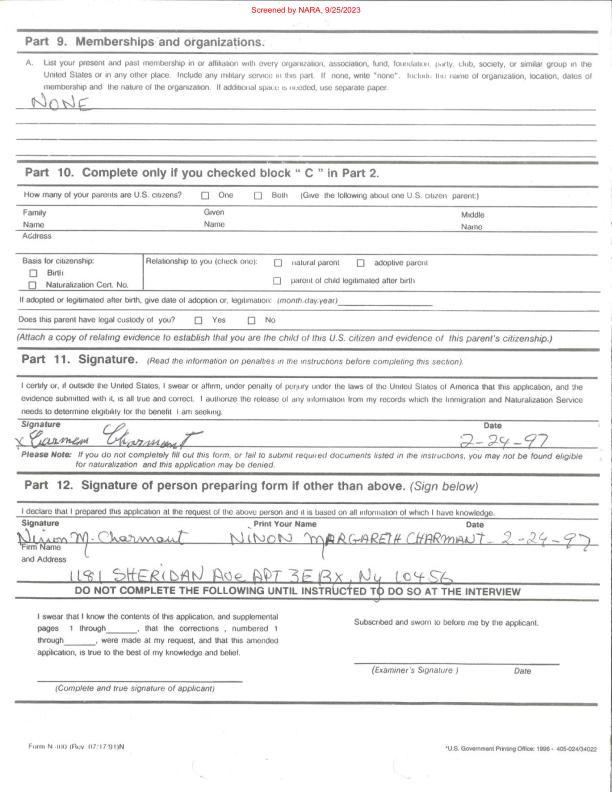 Screened by NARA, 9/25/2023
Part 9. Memberships and organizations.
A. List your present and past membership in or affiliation with every organization, association, fund, foundation, party, club, society, or similar group in the
United States or in any other place. Include any military service in this part. If none, write "none". Include the name of organization, location, dates of
membership and the nature of the organization. If additional space is needed, use separate paper.
NONE
Part 10. Complete only if you checked block " C " in Part 2.
How many of your parents are U.S. citizens? One Both (Give the following about one U.S. citizen parent:)
Family Given Middle
Name Name Name
Address
Basis for citizenship: Relationship to you (check one): natural parent adoptive parent
Birth
Naturalization Cert. No. parent of child legitimated after birth
If adopted or legitimated after birth, give date of adoption or, legitimation: (month-day-year)
Does this parent have legal custody of you? Yes No
(Attach a copy of relating evidence to establish that you are the child of this U.S. citizen and evidence of this parent's citizenship.)
Part 11. Signature. (Read the information on penalties in the instructions before completing this section).
I certify or, if outside the United States, I swear or affirm, under penalty of perjury under the laws of the United States of America that this application, and the
evidence submitted with it, is all true and correct. I authorize the release of any information from my records which the Immigration and Naturalization Service
needs to determine eligibility for the benefit I am seeking.
Signature Date
x Carmen Charmant 2-24-97
Please Note: If you do not completely fill out this form, or fail to submit required documents listed in the instructions, you may not be found eligible
for naturalization and this application may be denied.
Part 12. Signature of person preparing form if other than above. (Sign below)
I declare that I prepared this application at the request of the above person and it is based on all information of which I have knowledge.
Signature Print Your Name Date
Ninon M. Charmant NINON MARGARETH CHARMANT - 2-24-97
Firm Name
and Address
1181 SHERIDAN Ave APT 3E BX, Ny 10456
DO NOT COMPLETE THE FOLLOWING UNTIL INSTRUCTED TO DO SO AT THE INTERVIEW
I swear that I know the contents of this application, and supplemental
pages 1 through______, that the corrections , numbered 1
through______, were made at my request, and that this amended
application, is true to the best of my knowledge and belief.
Subscribed and sworn to before me by the applicant.
(Examiner's Signature ) Date
(Complete and true signature of applicant)
Form N-400 (Rev. 07/17/91)N *U.S. Government Printing Office: 1996 - 405-024/34022